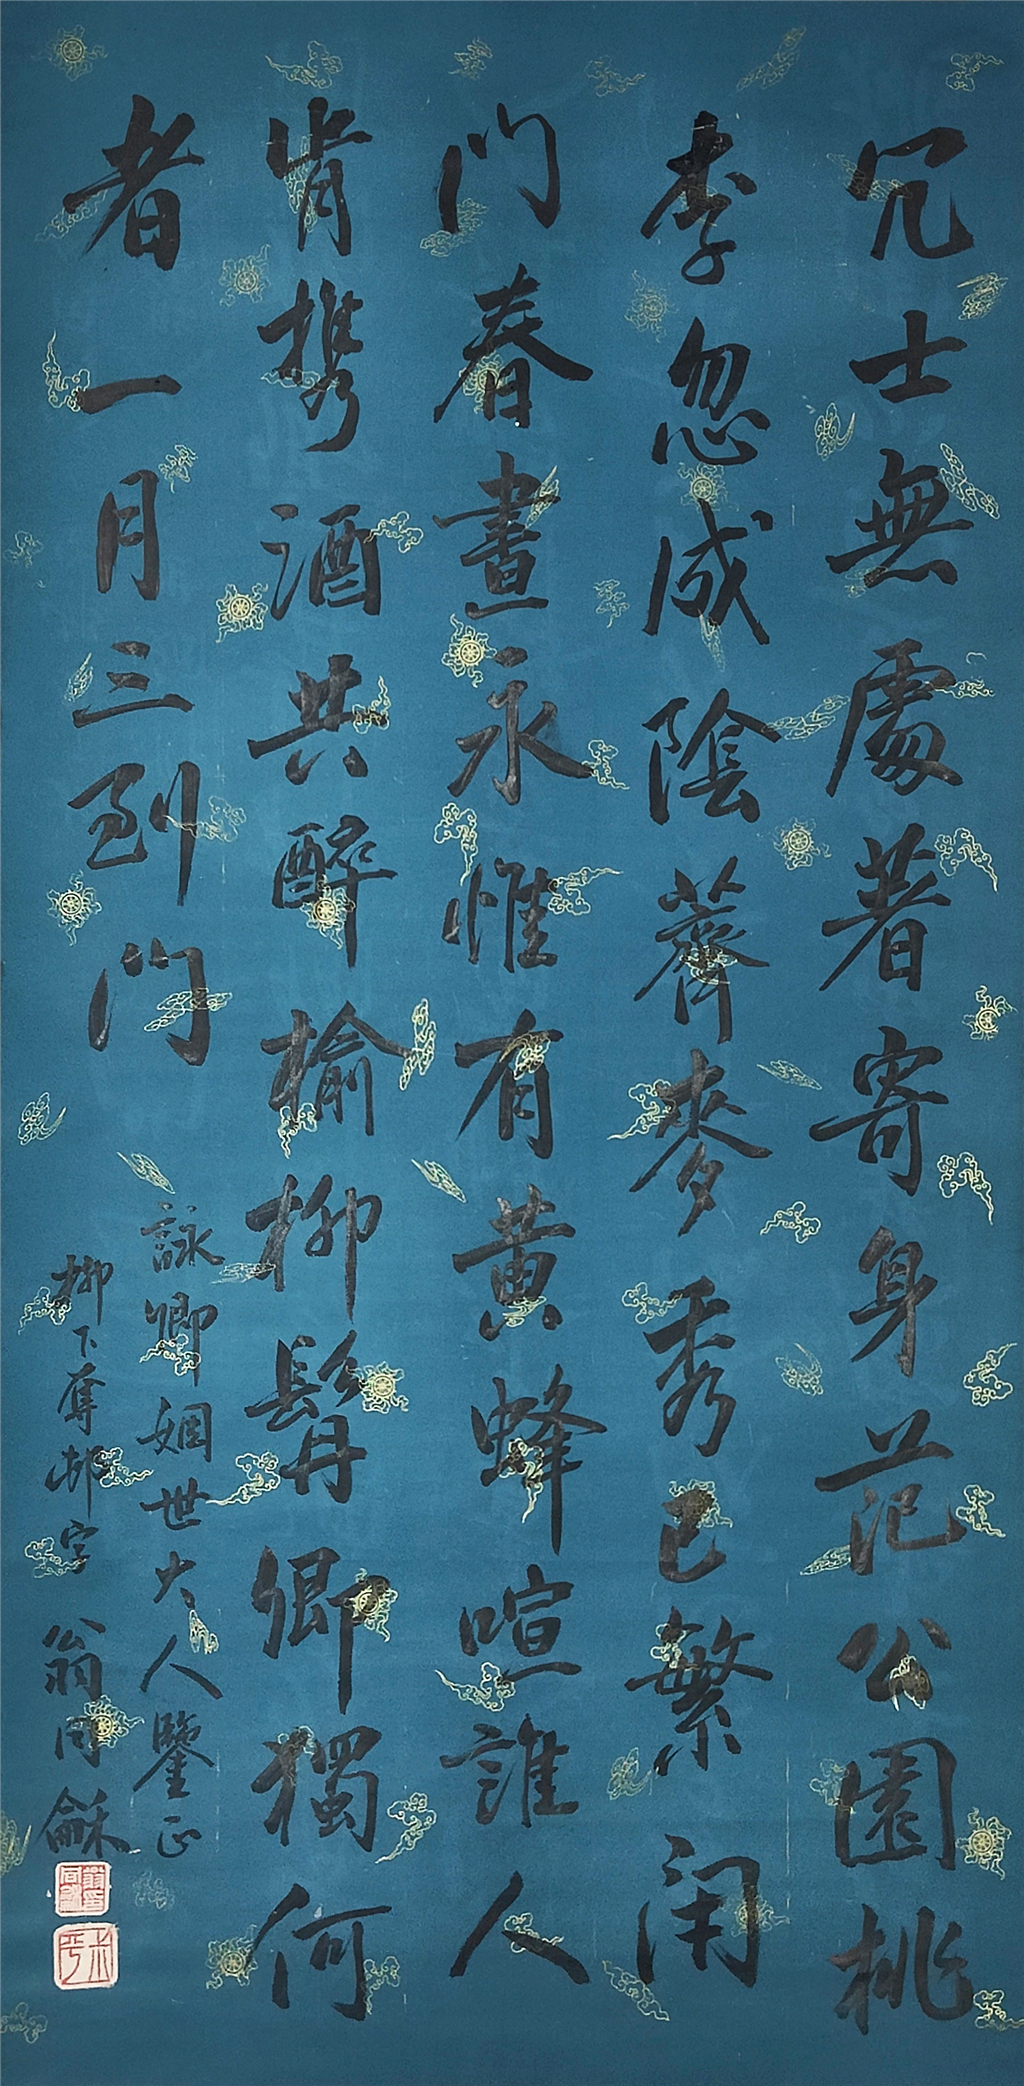 冗士無處著寄身范公園桃
李忽成陰薺麥秀已繁閉
門春晝永惟有黃蜂喧誰人
肯携酒共醉榆柳髯卿獨何
者一月三到門
詠卿姻世大人鑒正
柳下奪邨字 翁同龢